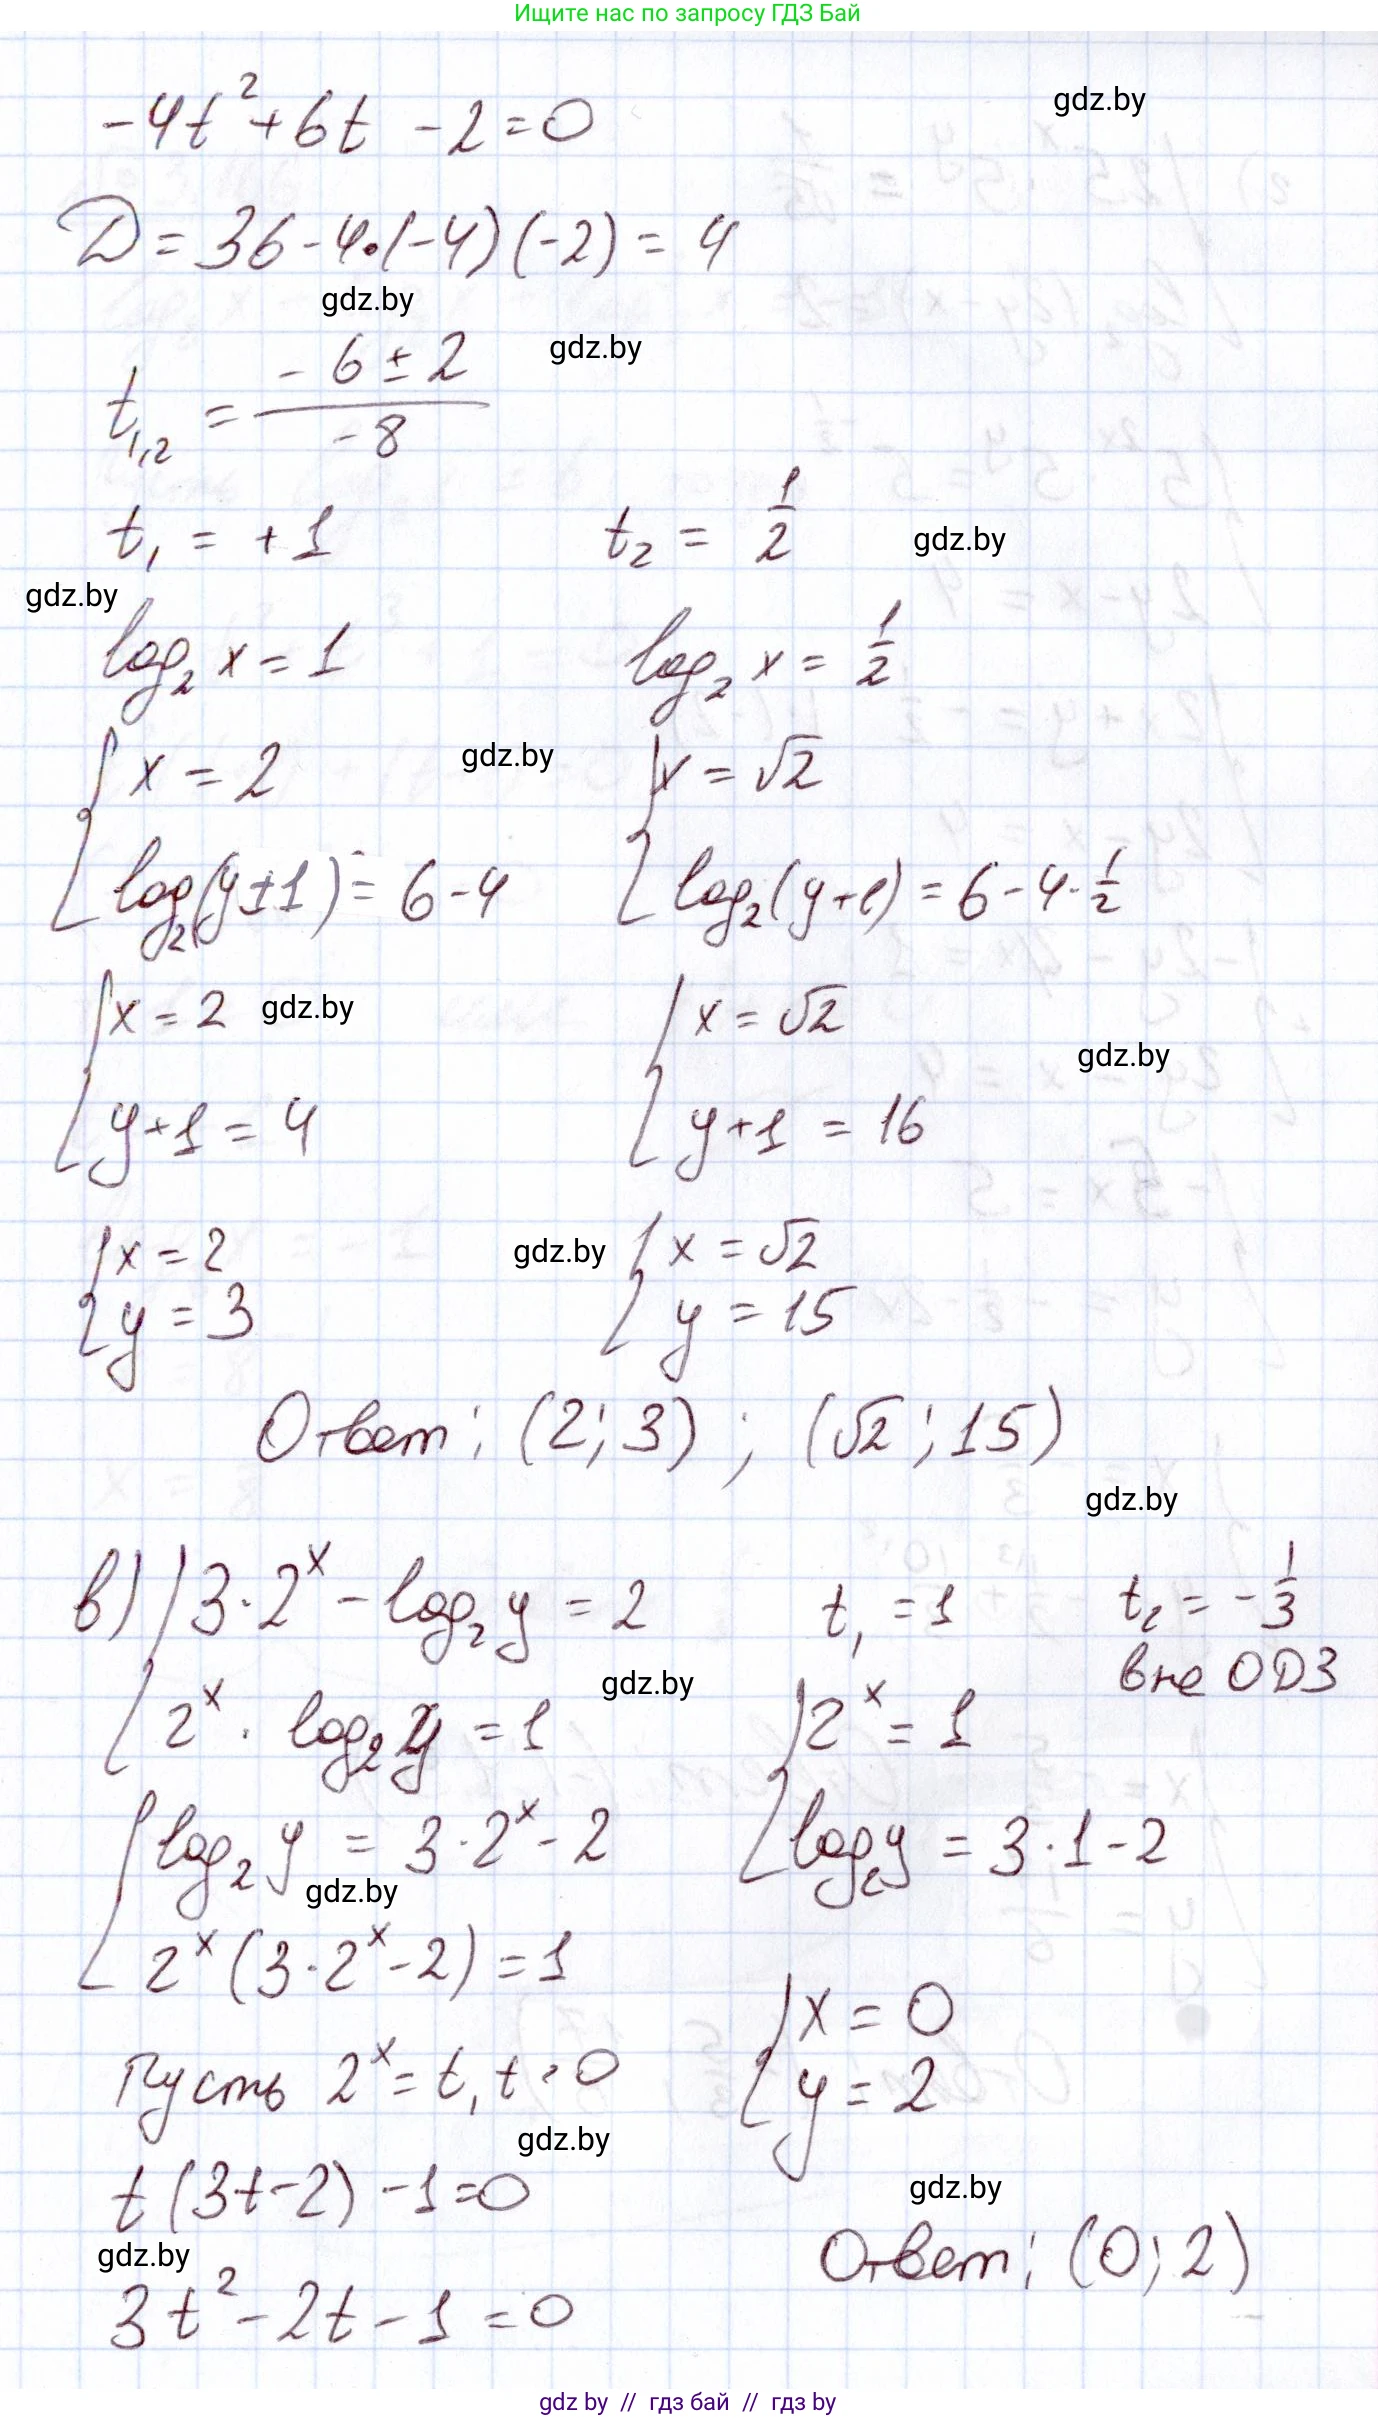 Ищите нас по запросу ГДЗ Бай
-4t² + 6t - 2 = 0
gdz.by
D = 36 - 4·(-4)(-2) = 4
gdz.by
gdz.by
t₁,₂ = (-6 ± 2)/(-8)
t₁ = +1 t₂ = 1/2
gdz.by
gdz.by
log₂ x = 1 log₂ x = 1/2
{ x = 2 { x = √2
gdz.by
log₂(y+1) = 6-4 log₂(y+1) = 6-4·1/2
{ x = 2 { x = √2
gdz.by
gdz.by
y+1 = 4 y+1 = 16
{ x = 2 { x = √2
gdz.by
y = 3 y = 15
Ответ: (2; 3) ; (√2; 15)
gdz.by
в) { 3·2ˣ - log₂ y = 2
2ˣ · log₂ y = 1
gdz.by
{ log₂ y = 3·2ˣ - 2
gdz.by
2ˣ(3·2ˣ - 2) = 1
Пусть 2ˣ = t, t > 0
gdz.by
t(3t-2) - 1 = 0
gdz.by
3t² - 2t - 1 = 0
t₁ = 1 t₂ = -1/3
вне ОДЗ
{ 2ˣ = 1
log₂ y = 3·1-2
{ x = 0
y = 2
gdz.by
Ответ: (0; 2)
gdz by // гдз бай // гдз by